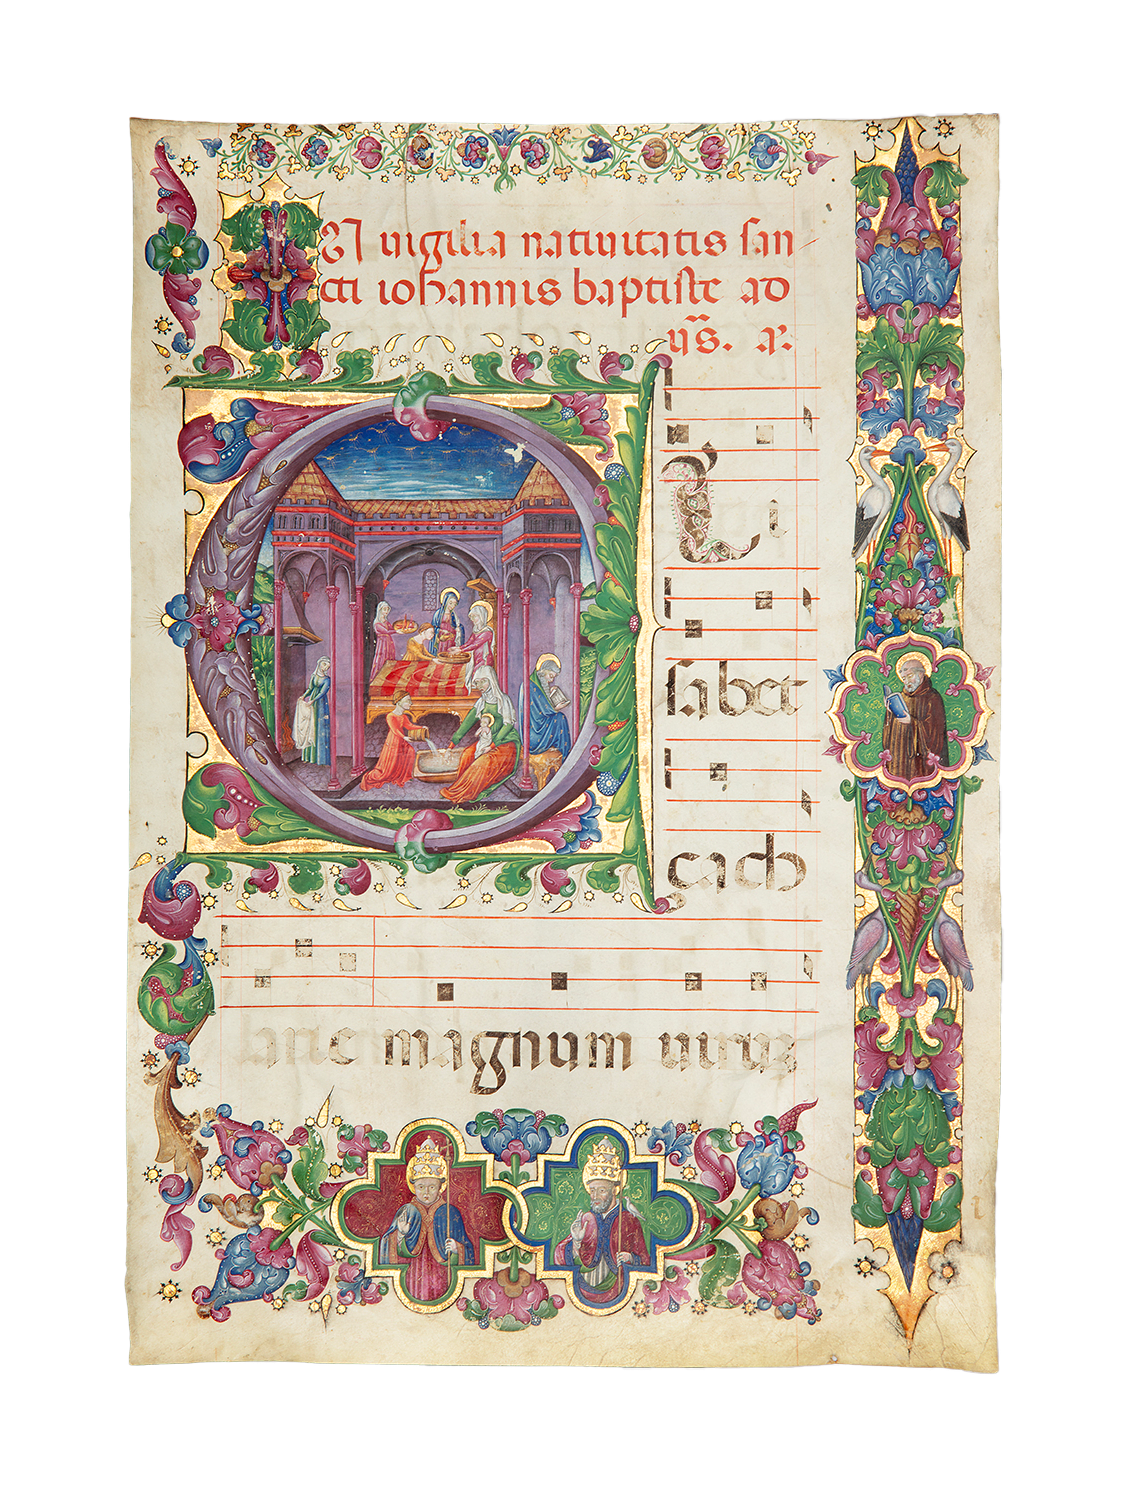 IN uigilia natiuitatis san
cti iohannis baptiste ad
ųs̃. a᷒.
EL
sabet
çach
arie magnum uirum